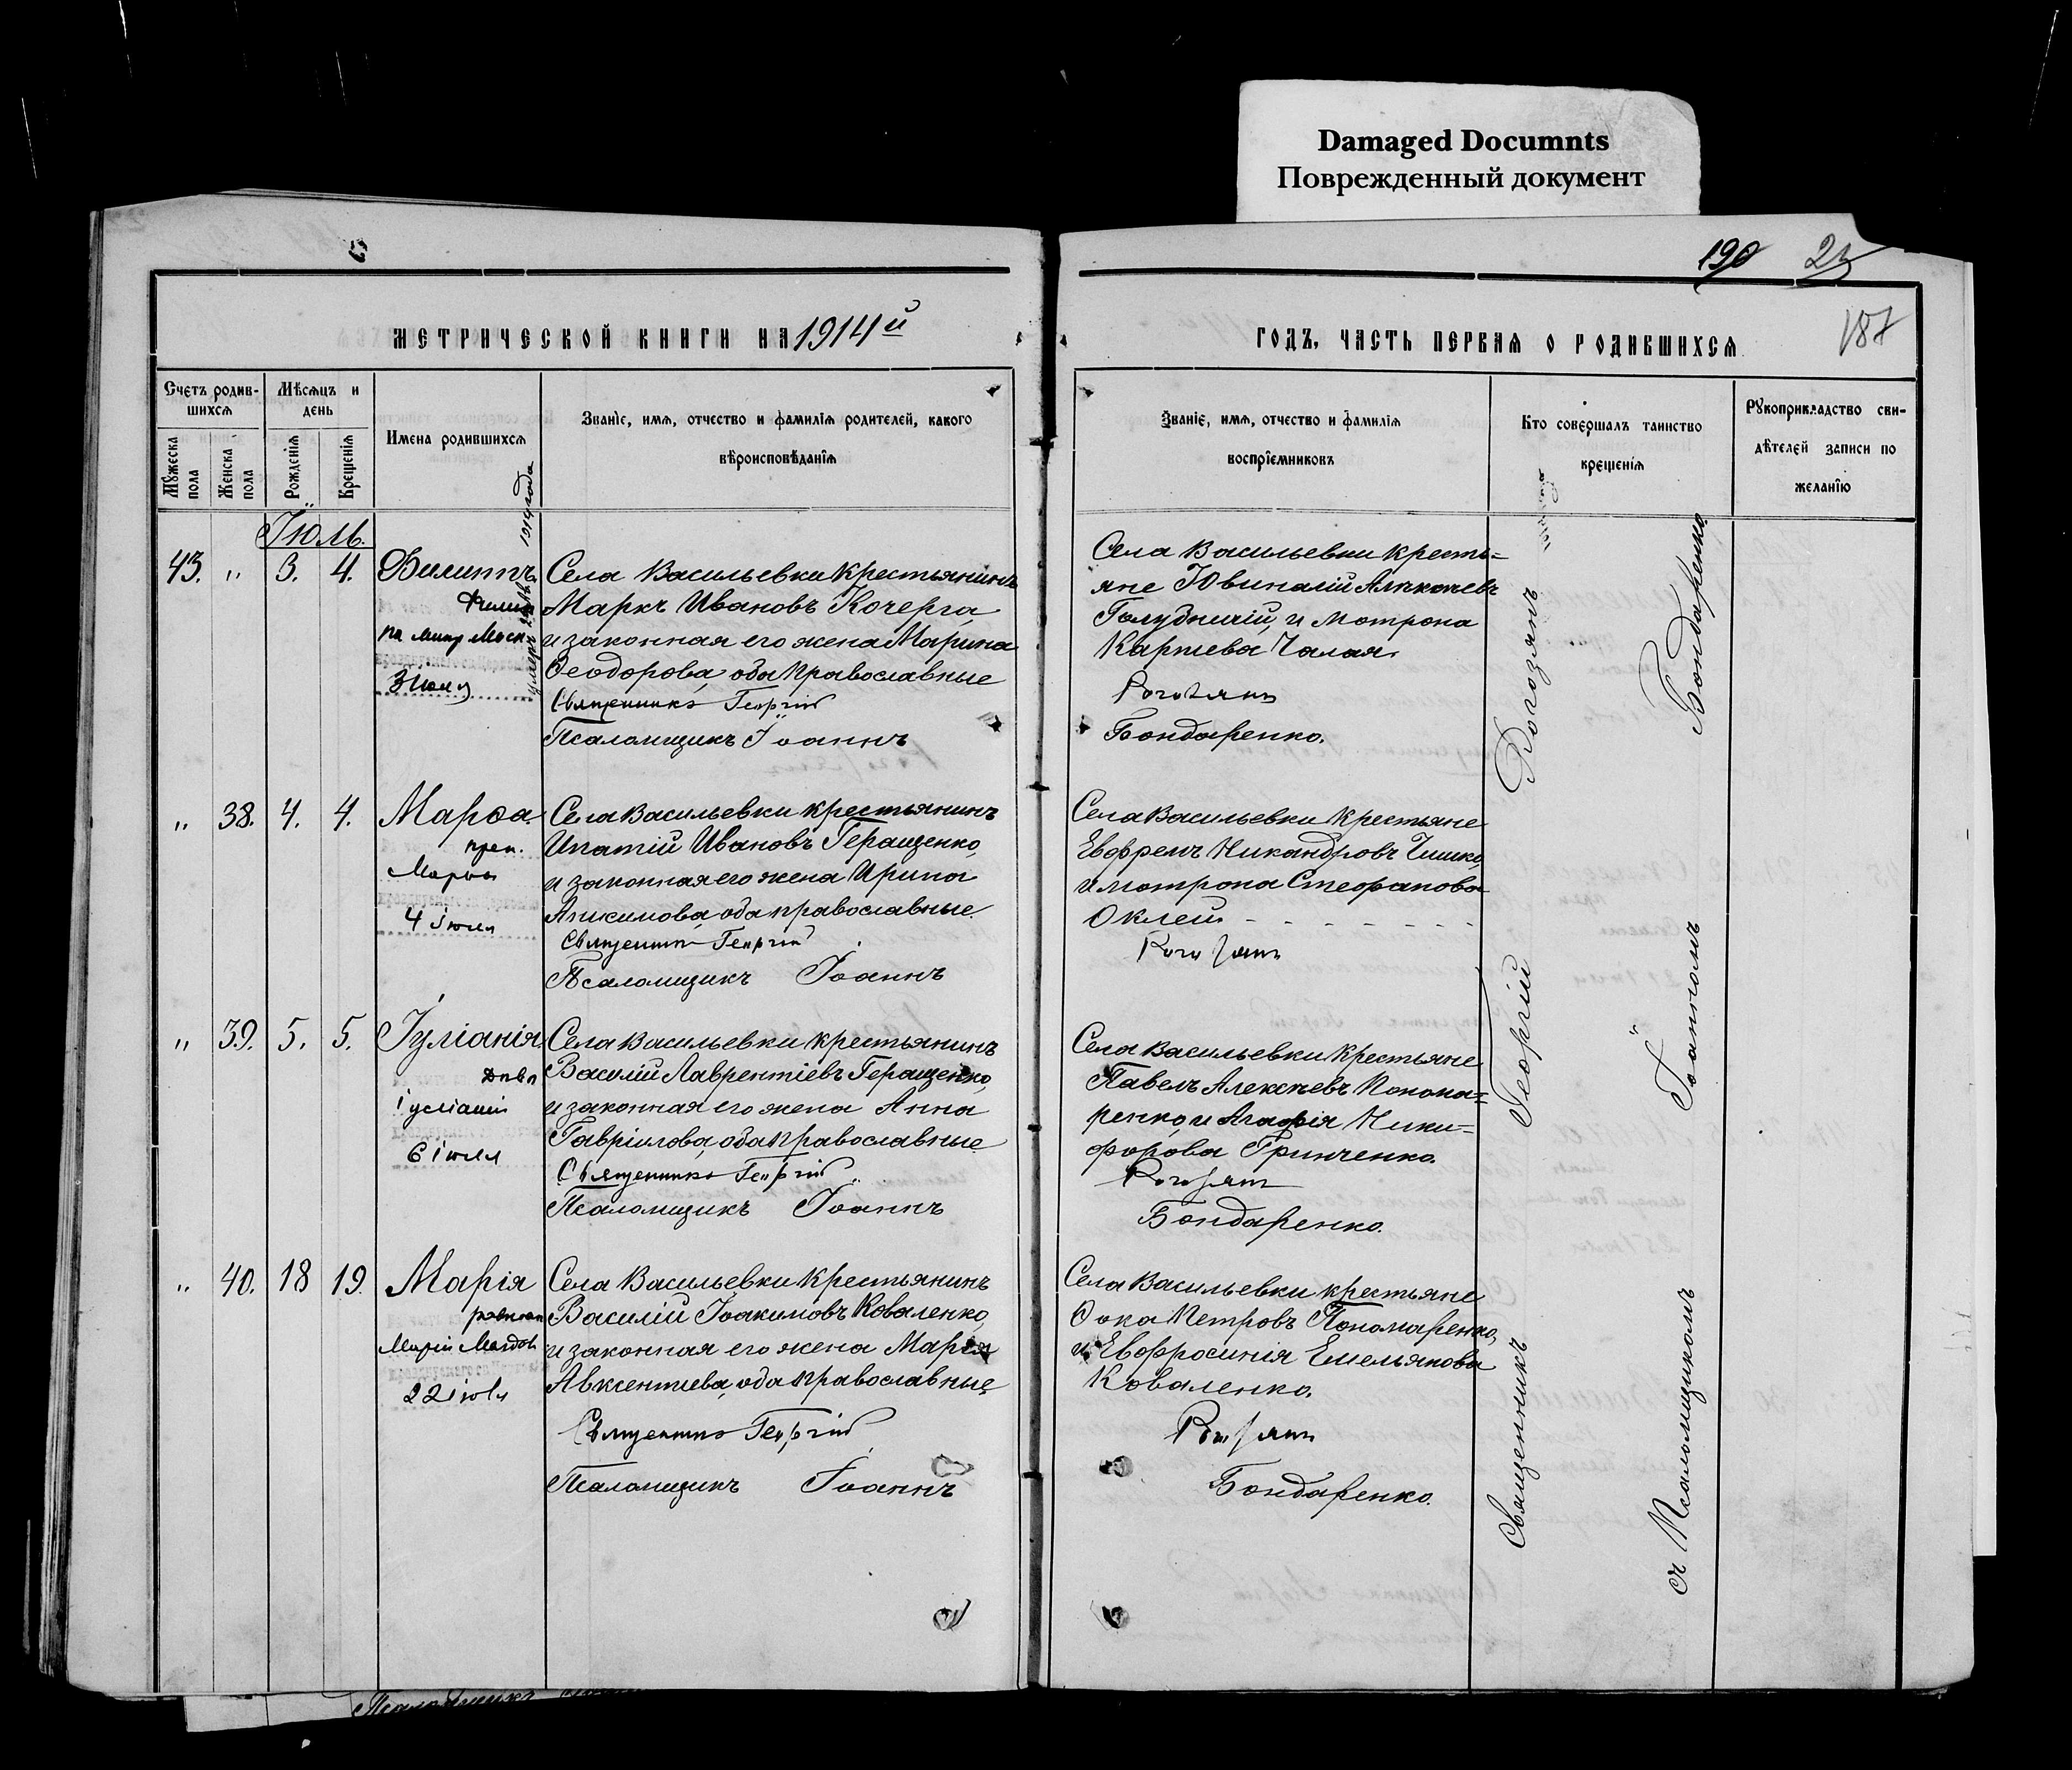 Damaged Documnts
Поврежденный документ
190 23
187
МЕТРИЧЕСКОЙ КНИГИ НА 1914й
ГОДЪ, ЧАСТЬ ПЕРВАЯ О РОДИВШИХСЯ
Счетъ родив-
шихся
Мѣсяцъ и
день
Имена родившихся
Званіе, имя, отчество и фамилія родителей, какого
вѣроисповѣданія
Мужеска
пола
Женска
пола
Рожденія
Крещенія
Званіе, имя, отчество и фамилія
воспріемниковъ
Кто совершалъ таинство
крещенія
Рукоприкладство сви-
дѣтелей записи по
желанію
Іюль.
43. " 3. 4. Филиппъ.
3 июля
1914 года
Села Васильевки крестьянинъ
Маркъ Ивановъ Кочерга,
и законная его жена Марина
Ѳеодорова, оба православные
Священникъ Георгій
Псаломщикъ Іоаннъ
Села Васильевки кресть=
яне Ювиналій
Голубничій, и Мотрона
Карпова Чалая.
Рогозянъ
Бондаренко.
" 38. 4. 4. Марѳа.
преп.
Марѳы
4 іюля
Села Васильевки крестьянинъ
Ипатій Ивановъ Геращенко,
и законная его жена Ирина
Анисимова, оба православные.
Священникъ Георгій
Псаломщикъ Іоаннъ
Села Васильевки крестьяне
Евфремъ Никандровъ Чишко,
и Мотрона Стефанова
Оклей
Рогозянъ
" 39. 5. 5. Іуліанія
Іуліаніи
6 іюля
Села Васильевки крестьянинъ
Василій Лаврентіевъ Геращенко,
и законная его жена Анна
Гавріилова, оба православные
Священникъ Георгій
Псаломщикъ Іоаннъ
Села Васильевки крестьяне
Павелъ Алексѣевъ Конона=
ренко, и Агафія Ники=
форова Гринченко.
Рогозянъ
Бондаренко.
" 40. 18 19. Марія
равноап
Маріи Магдал
22 іюля
Села Васильевки крестьянинъ
Василій Іоакимовъ Коваленко,
и законная его жена Марія
Авксентиева, оба православные
Священникъ Георгій
Псаломщикъ Іоаннъ
Села Васильевки крестьяне
Ѳока Петровъ Пономаренко,
и Евфросинія Емельянова
Коваленко.
Рогозянъ
Бондаренко.
Священникъ Георгій Рогозянъ
съ Псаломщикомъ Іоанномъ Бондаренко.